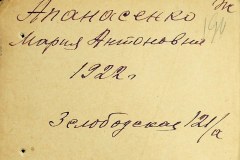 Апанасенко
Мария Антоновна
1922 г
Зелободская 121/а